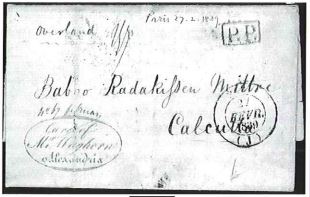 Paris 27. 2. 1839
overland
P.P.
Baboo Radakissen Mittre
Calcutta
Care of
Mr. Waghorn
Alexandria
27
FEVR.
1839
(J)